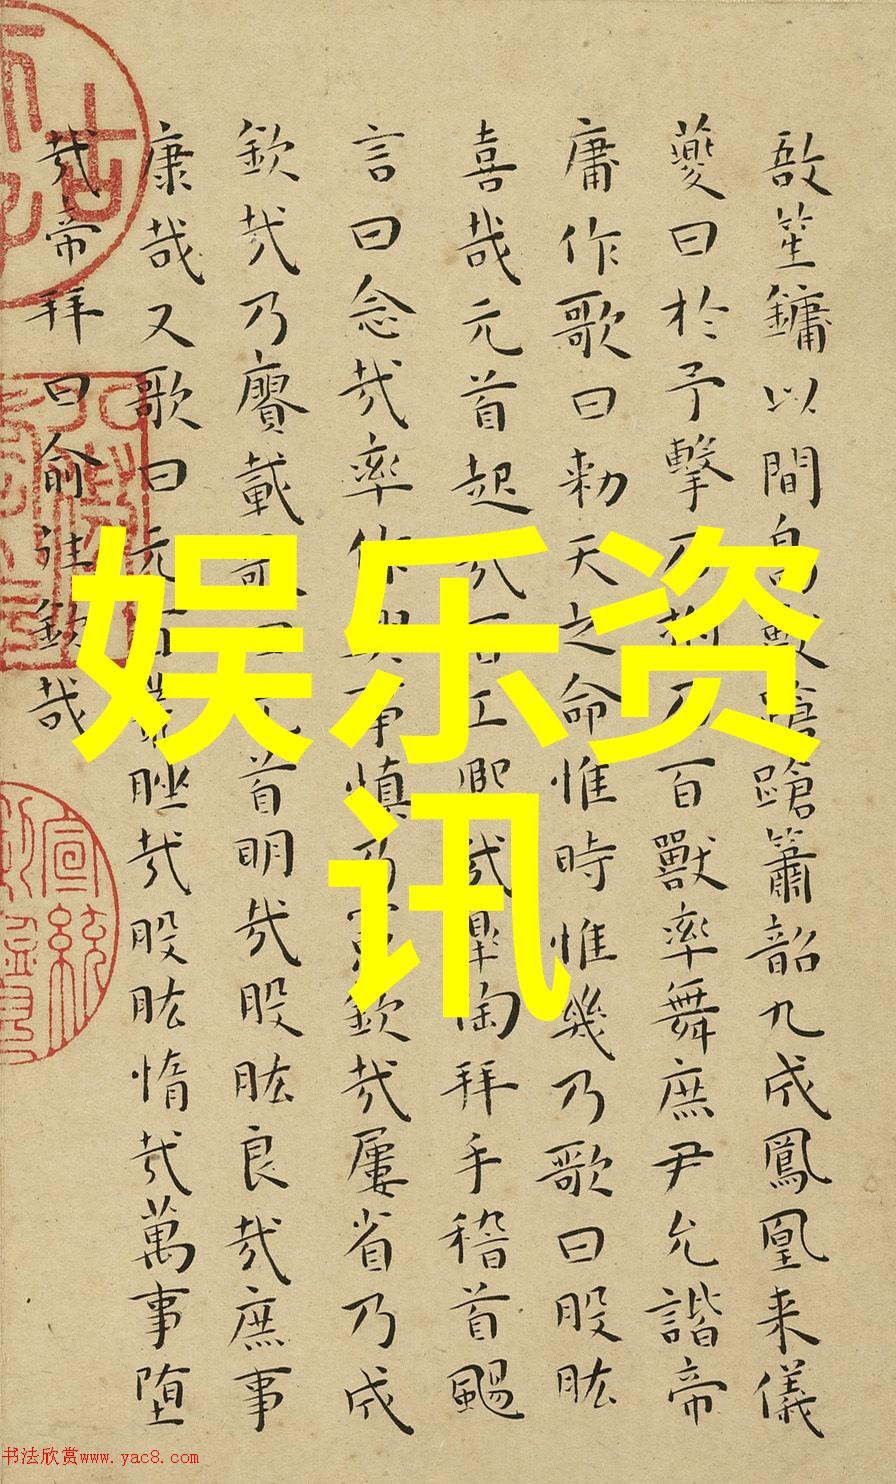 敔笙鏞以間鳥獸蹌蹌簫韶九成鳳凰来儀
夔曰於予擊百獸率舞庶尹允諧帝
庸作歌曰勑天之命惟時惟幾乃歌曰股肱
喜哉元首起哉百工熙哉皋陶拜手稽首颺
言曰念哉率作事慎乃欽哉屢省乃成
欽哉乃賡載首明哉股肱良哉庶事
康哉又歌曰元脞哉股肱惰哉萬事堕
哉帝拜曰俞往欽哉
娱乐资
讯
书法欣赏www.yac8.com